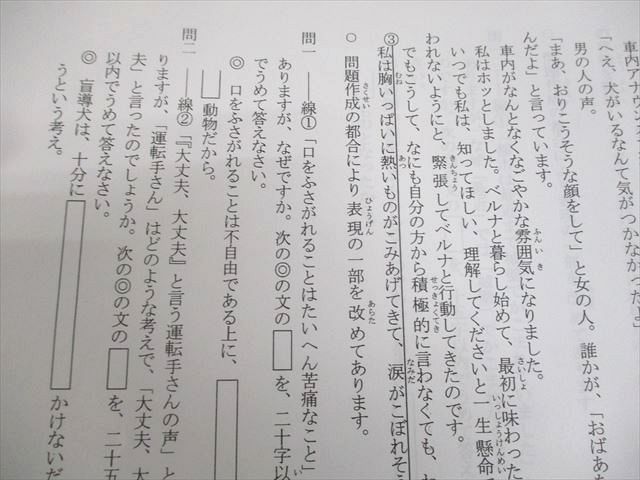 車内アナウン
「へえ、犬がいるなんて気がつかなかったよ」
男の人の声。
「まあ、おりこうそうな顔をして」と女の人。誰かが、「おばあ
んだよ」と言っています。
車内がなんとなくなごやかな雰囲気になりました。
私はホッとしました。ベルナと暮らし始めて、最初に味わった
いつでも私は、知ってほしい、理解してくださいと一生懸命で
われないようにと、緊張してベルナと行動してきたのです。
でもこうして、なにも自分の方から積極的に言わなくても、
③私は胸いっぱいに熱いものがこみあげてきて、涙がこぼれそう
○ 問題作成の都合により表現の一部を改めてあります。
問一 ――線①「口をふさがれることはたいへん苦痛なこと」
ありますが、なぜですか。次の◎の文の□を、二十字以
でうめて答えなさい。
◎ 口をふさがれることは不自由である上に、
動物だから。
問二 ――線②「『大丈夫、大丈夫』と言う運転手さんの声」と
りますが、「運転手さん」はどのような考えで、「大丈夫、大
夫」と言ったのでしょうか。次の◎の文の□を、二十五
以内でうめて答えなさい。
◎ 盲導犬は、十分に□かけないだ
うという考え。